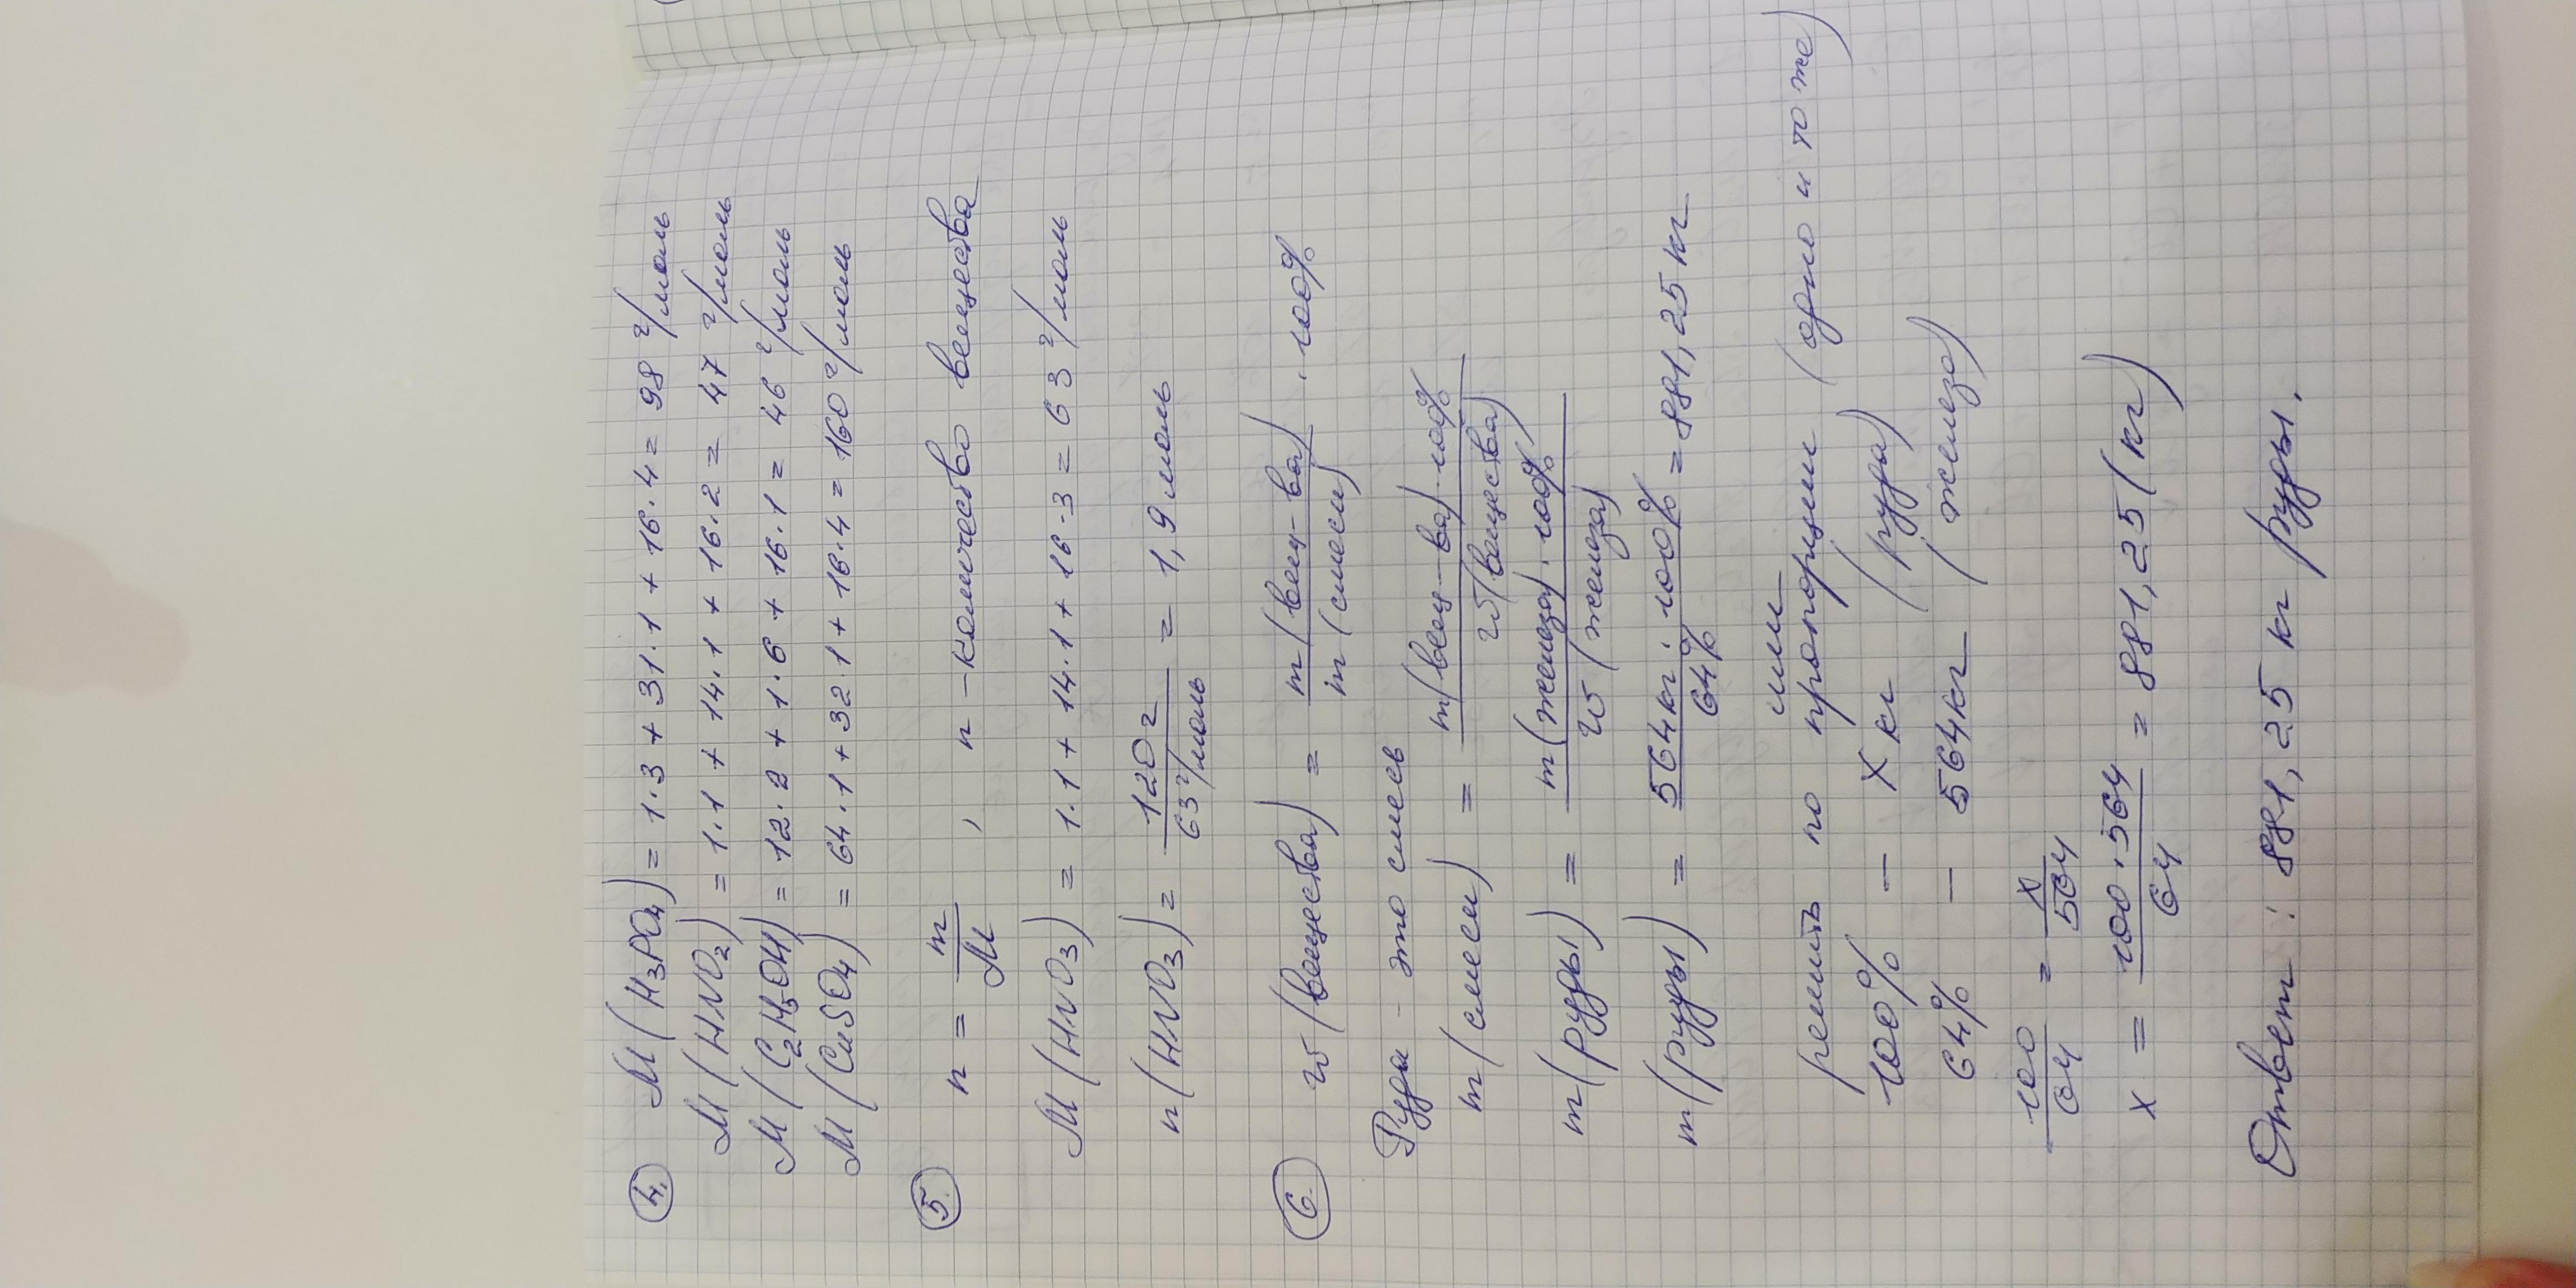 4. M(H₃PO₄) = 1·3 + 31·1 + 16·4 = 98 г/моль
M(HNO₂) = 1·1 + 14·1 + 16·2 = 47 г/моль
M(C₂H₅OH) = 12·2 + 1·6 + 16·1 = 46 г/моль
M(CuSO₄) = 64·1 + 32·1 + 16·4 = 160 г/моль
5. n = m/M , n - количество вещества
M(HNO₃) = 1·1 + 14·1 + 16·3 = 63 г/моль
n(HNO₃) = 120 г / 63 г/моль = 1,9 моль
6. w(вещества) = m(вещ-ва) / m(смеси) · 100%
Руда - это смесь
m(смеси) = m(вещ-ва)·100% / w(вещества)
m(руды) = m(железа)·100% / w(железа)
m(руды) = 564кг·100% / 64% = 881,25 кг
или
решить по пропорции (одно и то же)
100% – x кг (руда)
64% – 564кг (железо)
100/64 = x/564
x = 100·564 / 64 = 881,25 (кг)
Ответ: 881,25 кг руды.